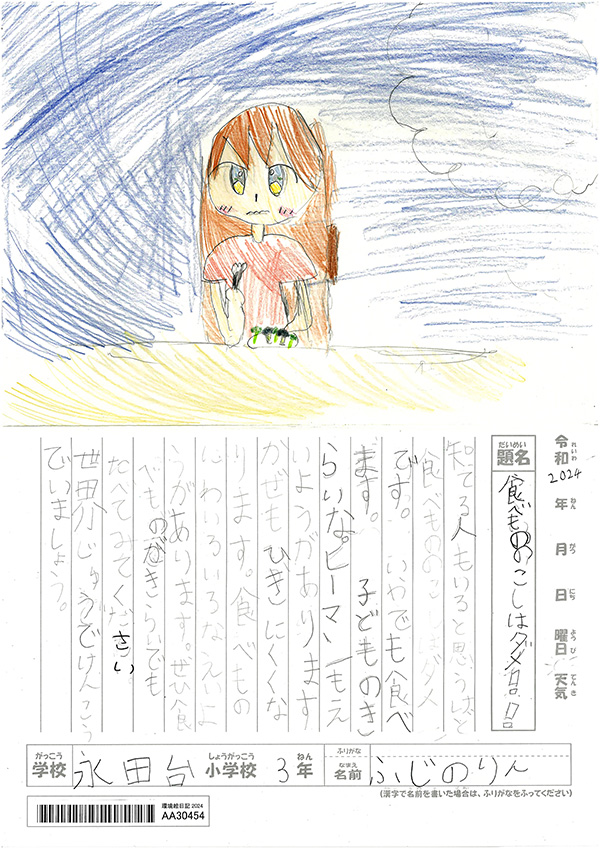 令和 2024 年 月 日 曜日 天気
れいわ ねん がつ にち ようび てんき
だいめい
題名
食べもののこしはダメ!!
知てる人もいると思うけど
食べもののこしはダメ
です。いやでも食べ
ます。子どものき
らいな。ピーマン一もえ
いようがあります
かぜもひきにくくな
ります。食べもの
にわいろいろなえいよ
うがあります。ぜひ食
べものがきらいでも
たべてみてください
世界介じゅうでけんこう
でいましょう。
がっこう
学校
永田台
しょうがっこう
小学校
3
ねん
年
ふりがな
なまえ
名前
ふじのりん
(漢字で名前を書いた場合は、ふりがなをふってください)
環境絵日記 2024
AA30454